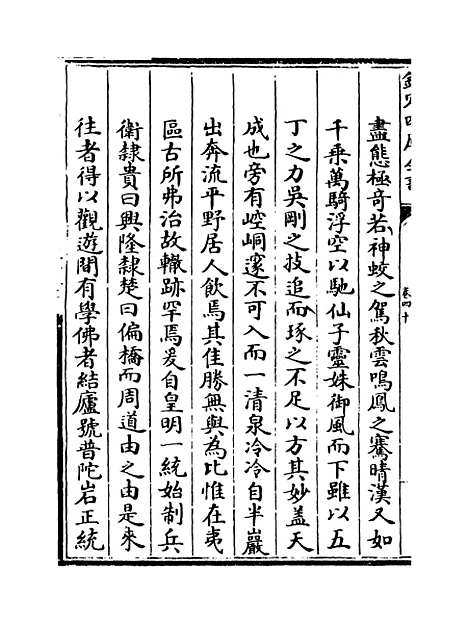 欽定四庫全書
卷四十
盡態極奇若神蛟之駕秋雲鳴鳳之騫晴漢又如
千乘萬騎浮空以馳仙子靈姝御風而下雖以五
丁之力吳剛之技追而琢之不足以方其妙蓋天
成也旁有崆峒邃不可入而一清泉冷冷自半巖
出奔流平野居人飲焉其佳勝無與為比惟在夷
區古所弗治故轍跡罕焉爰自皇明一統始制兵
衛隸貴曰興隆隸楚曰偏橋而周道由之由是來
往者得以觀遊間有學佛者結廬號普陀岩正統